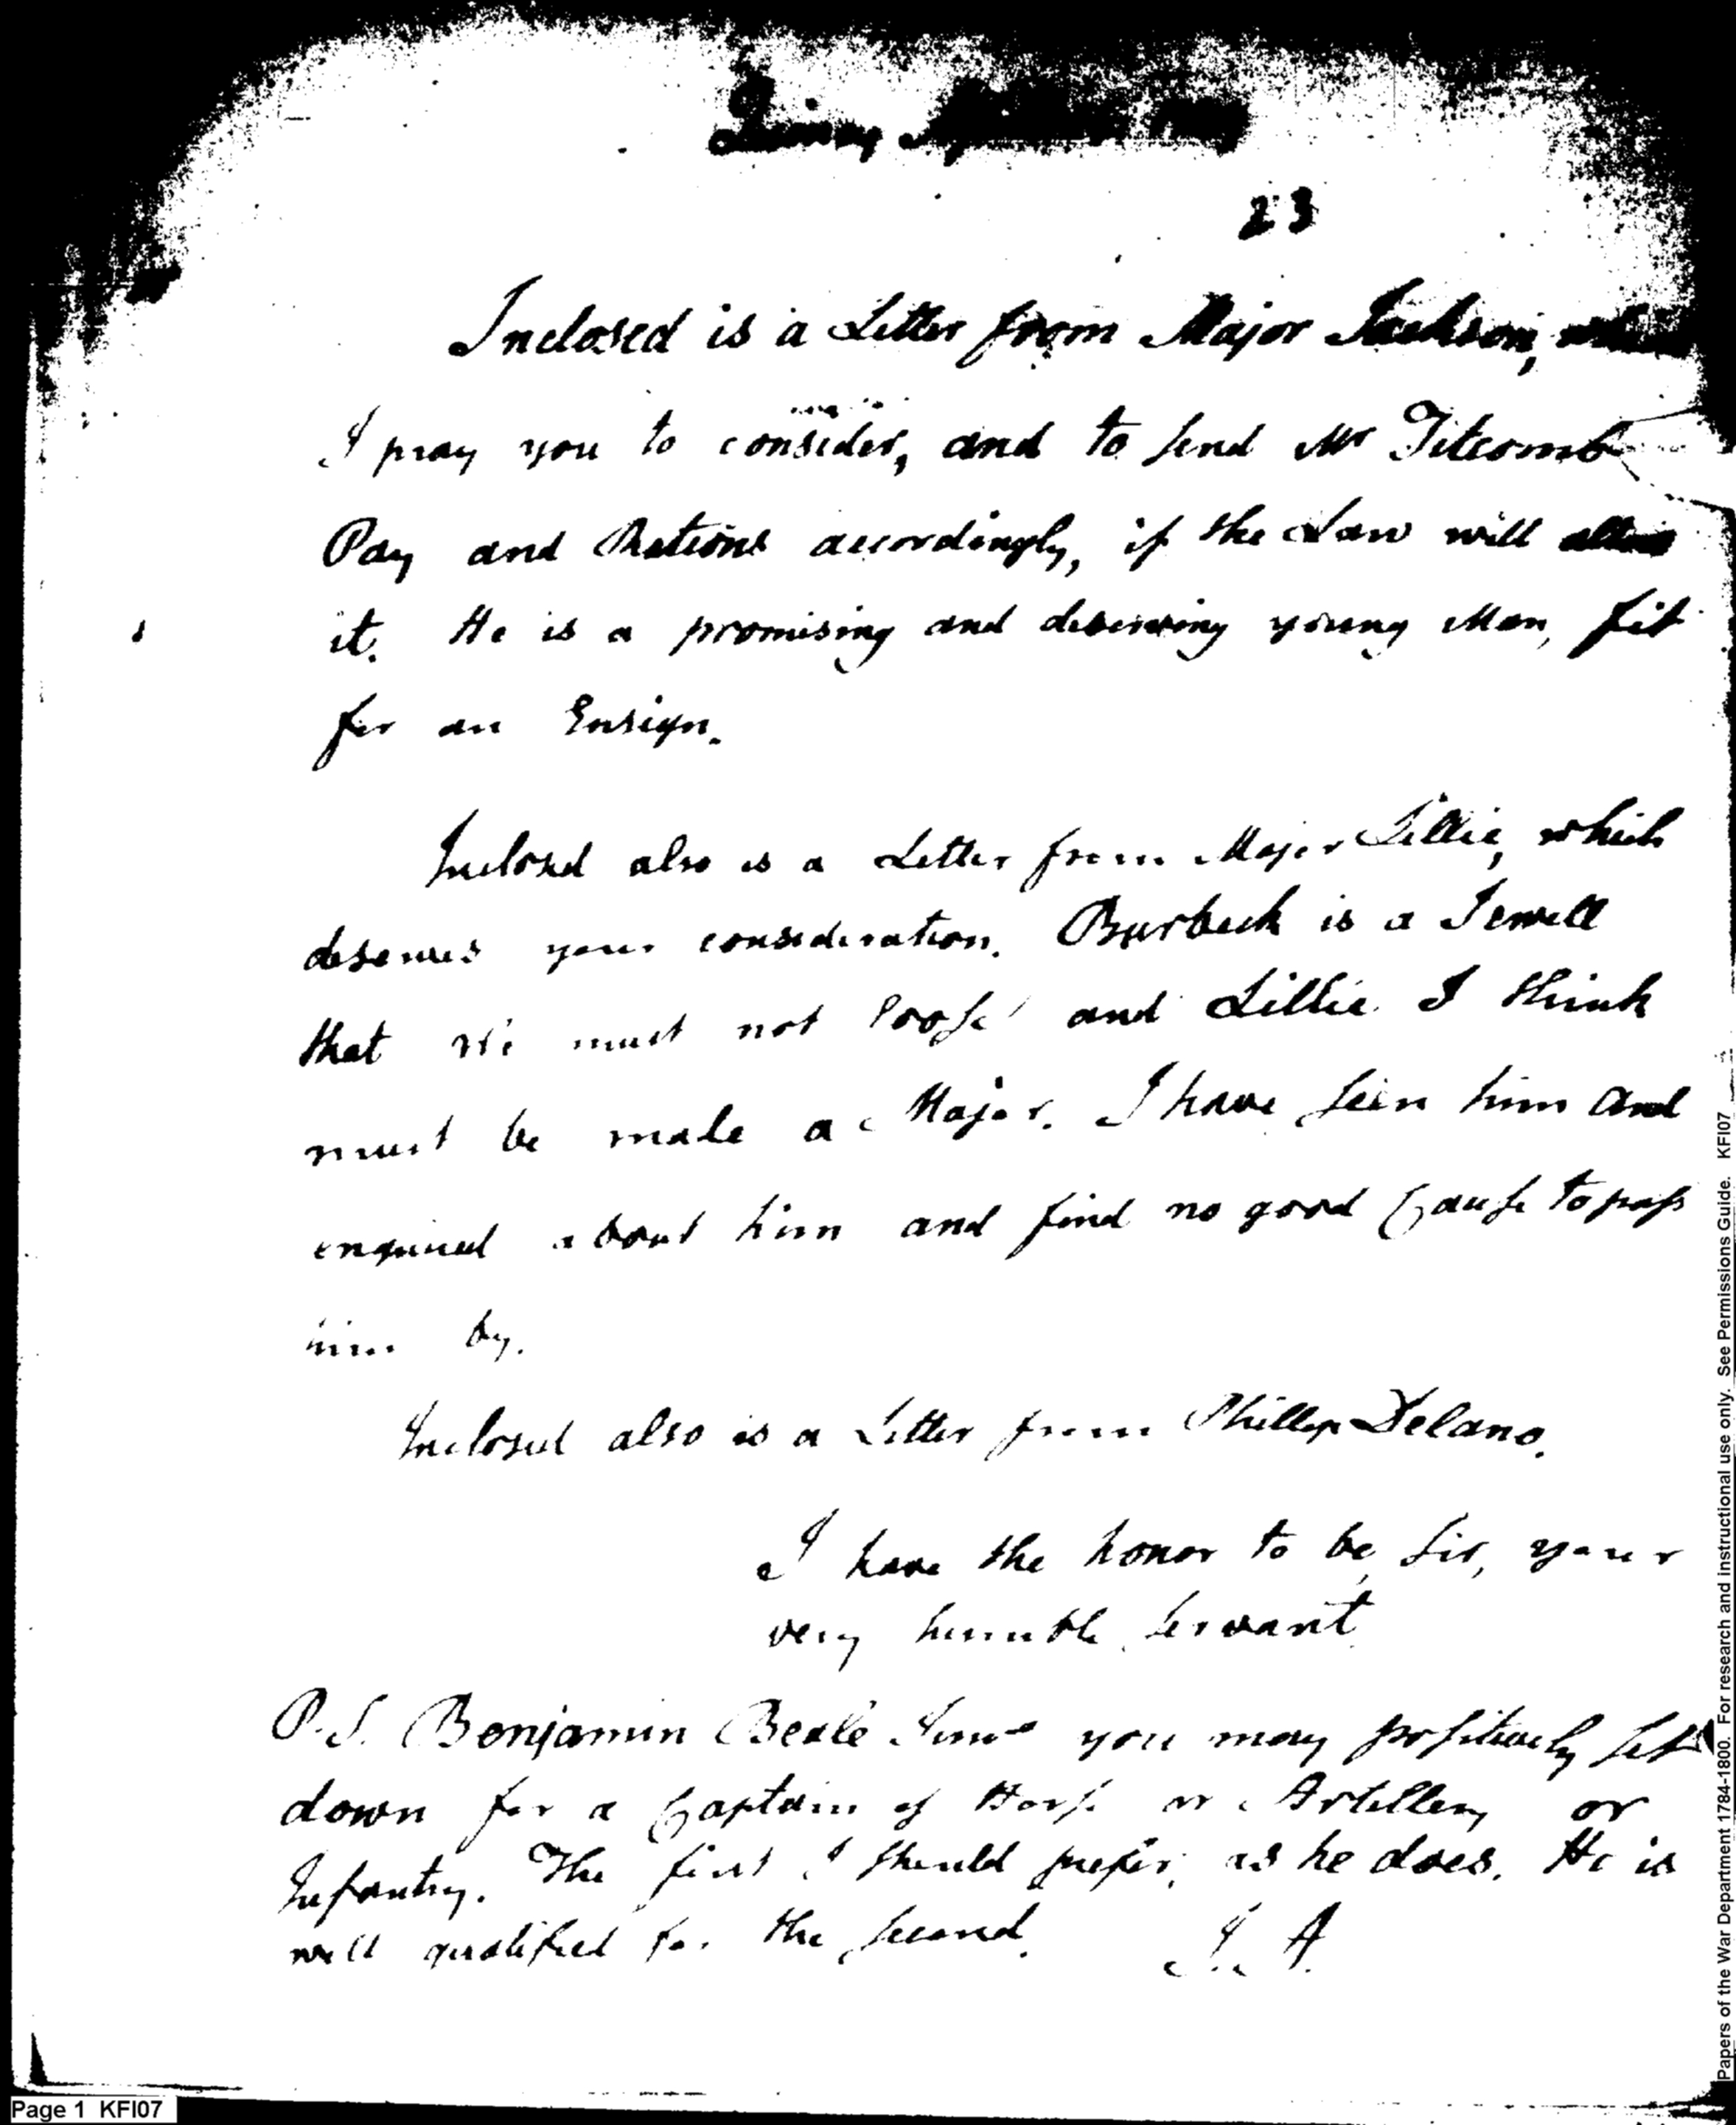 Quincy
23
Inclosed is a Letter from Major Jackson,
I pray you to consider, and to send Mr Titcomb
Pay and Rations accordingly, if the Law will allow
it. He is a promising and deserving young Man, fit
for an Ensign.
Inclosed also is a Letter from Major Lillie, which
deserves your consideration. Burbeck is a Jewell
that We must not loose and Lillie I think
must be made a Major. I have seen him and
enquired about him and find no good Cause to pass
him by.
Inclosed also is a Letter from Phillip Delano.
I have the honor to be, Sir, your
very humble Servant
P.S. Benjamin Beale Junr you may positively set
down for a Captain of Horse or Artillery or
Infantry. The first I should prefer, as he does. He is
well qualified for the second. J. A.
Papers of the War Department 1784-1800. For research and instructional use only. See Permissions Guide. KFI07
Page 1 KFI07